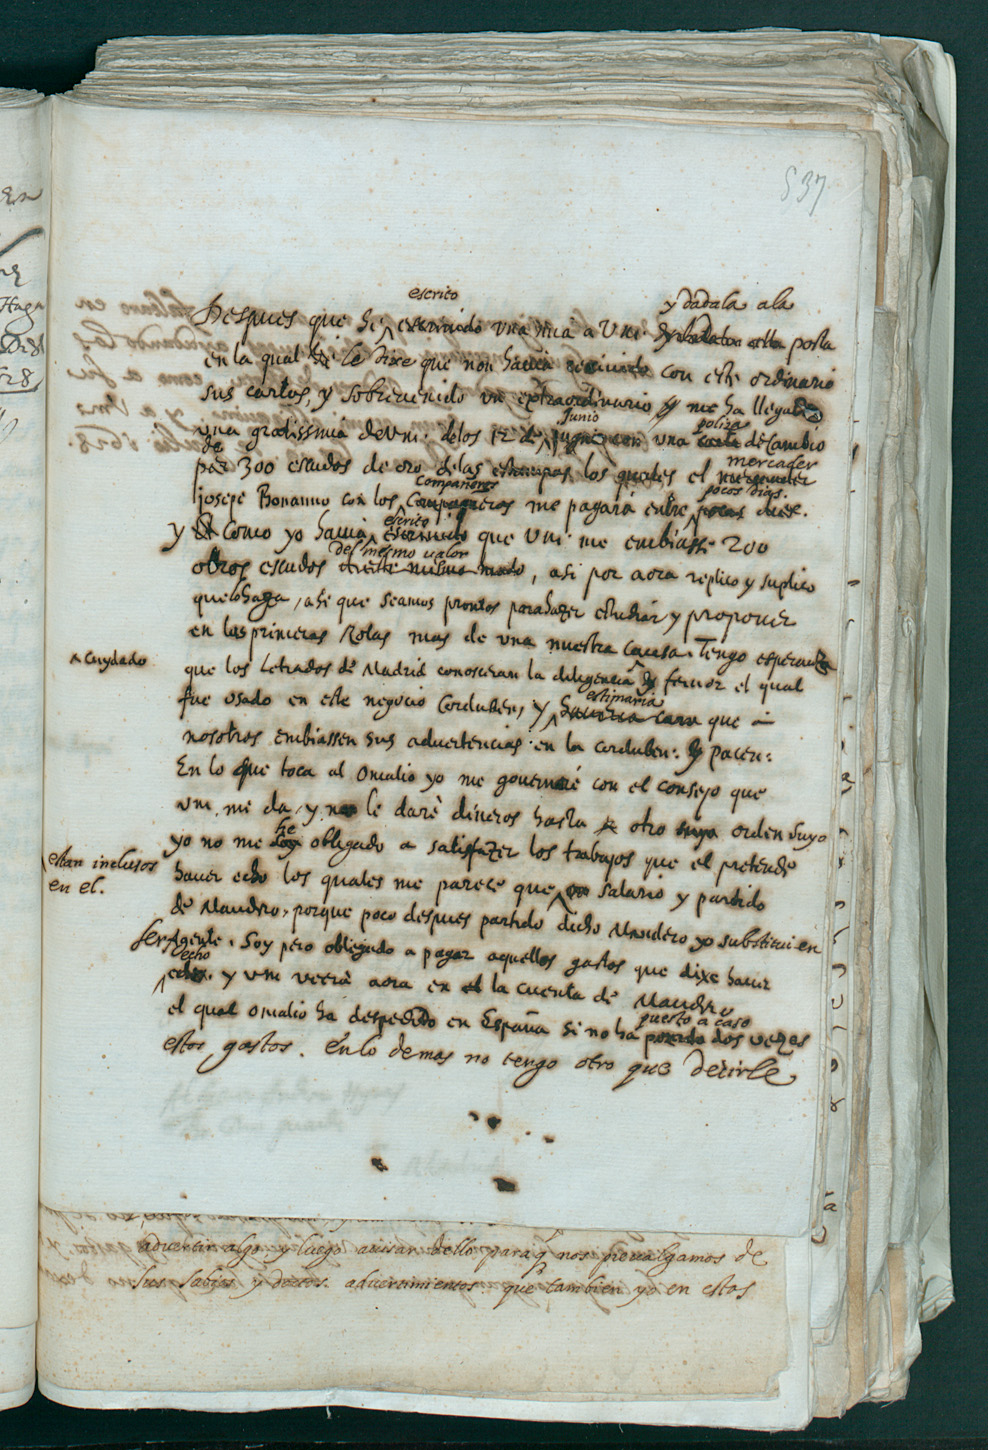 537
escrito y dadala ala
Despues que hè escrivido una mia a Vm. posta
en la qual le dixe que non havia recivido con este ordinario
sus cartas, y sobrevenido un extraordinario me ha llegado
Junio poliza
una gratissima de Vm. delos 12 de Jugno con una carta de cambio
de mercader
por 300 escudos de oro delas estampas los quales el mercader
Compañeros pocos dias.
Josepe Bonanno con los Compagneros me pagará entre pocas diese.
escrito
y Como yo havia escrivido que Vm. me embiasse 200
del mesmo valor
otros escudos mismo modo, asi por aora replico y suplico
que lo haga, ase que seamos prontos para hazer estudiar y proponer
en las primeras Rotas mas de una nuestra causa. Tengo esperanza
^ cuydado
que los Letrados de Madrid conosceran la diligencia y fervor el qual
estimaria
fue usado en este negocio Corduben, y cara que à
nosotros embiassen sus advertencias en la corduben: y pacen:
En lo que toca al Onialio yo me governaré con el consejo que
vm. me da, y no le darè dineros hasta otro suya orden suyo
he
yo no me soy obligado a satisfazer los trabajos que el pretende
estan inclusos
en el.
haver echo los quales me parece que salario y partido
de Mandro, porque poco despues partido dicho Mandero yo substitui en
ser Agente. Soy pero obligado a pagar aquellos gastos que dixe haver
echo
y vm verrà aora en la cuenta de Mandro
puesto a caso
el qual Onialio ha despedido en España si no ha dos vezes
estos gastos. En lo demas no tengo otro que decirle
advertir algo y luego avisar dello para q̃ nos prevalgamos de
sus sabios y doctos advertimientos que tambien yo en estos